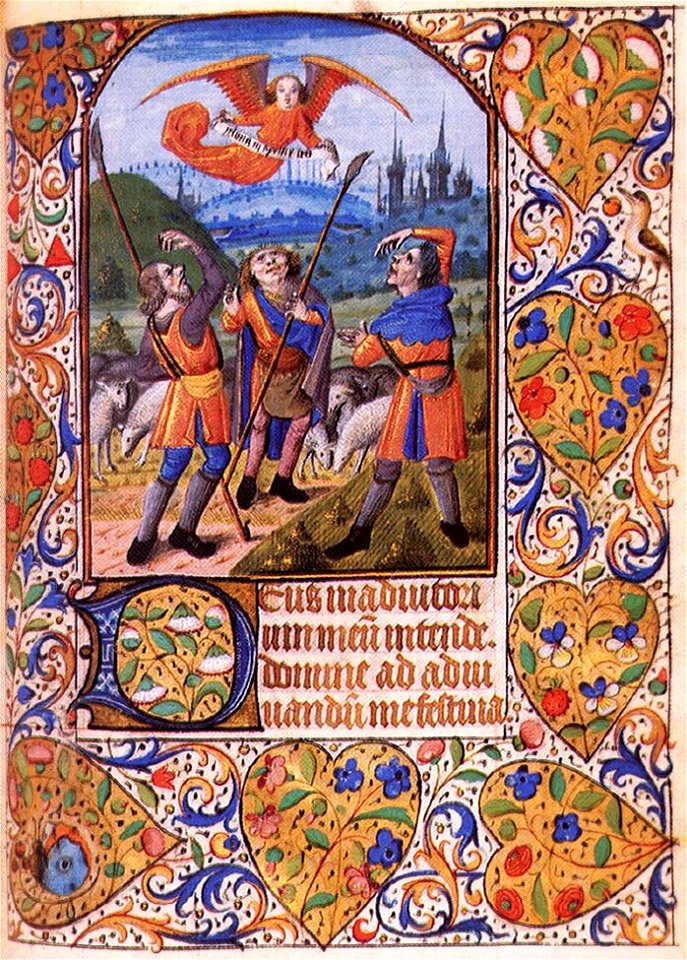 gloria in
Deus in adiutori
um meū intende.
domine ad adiu
uandū me festina.